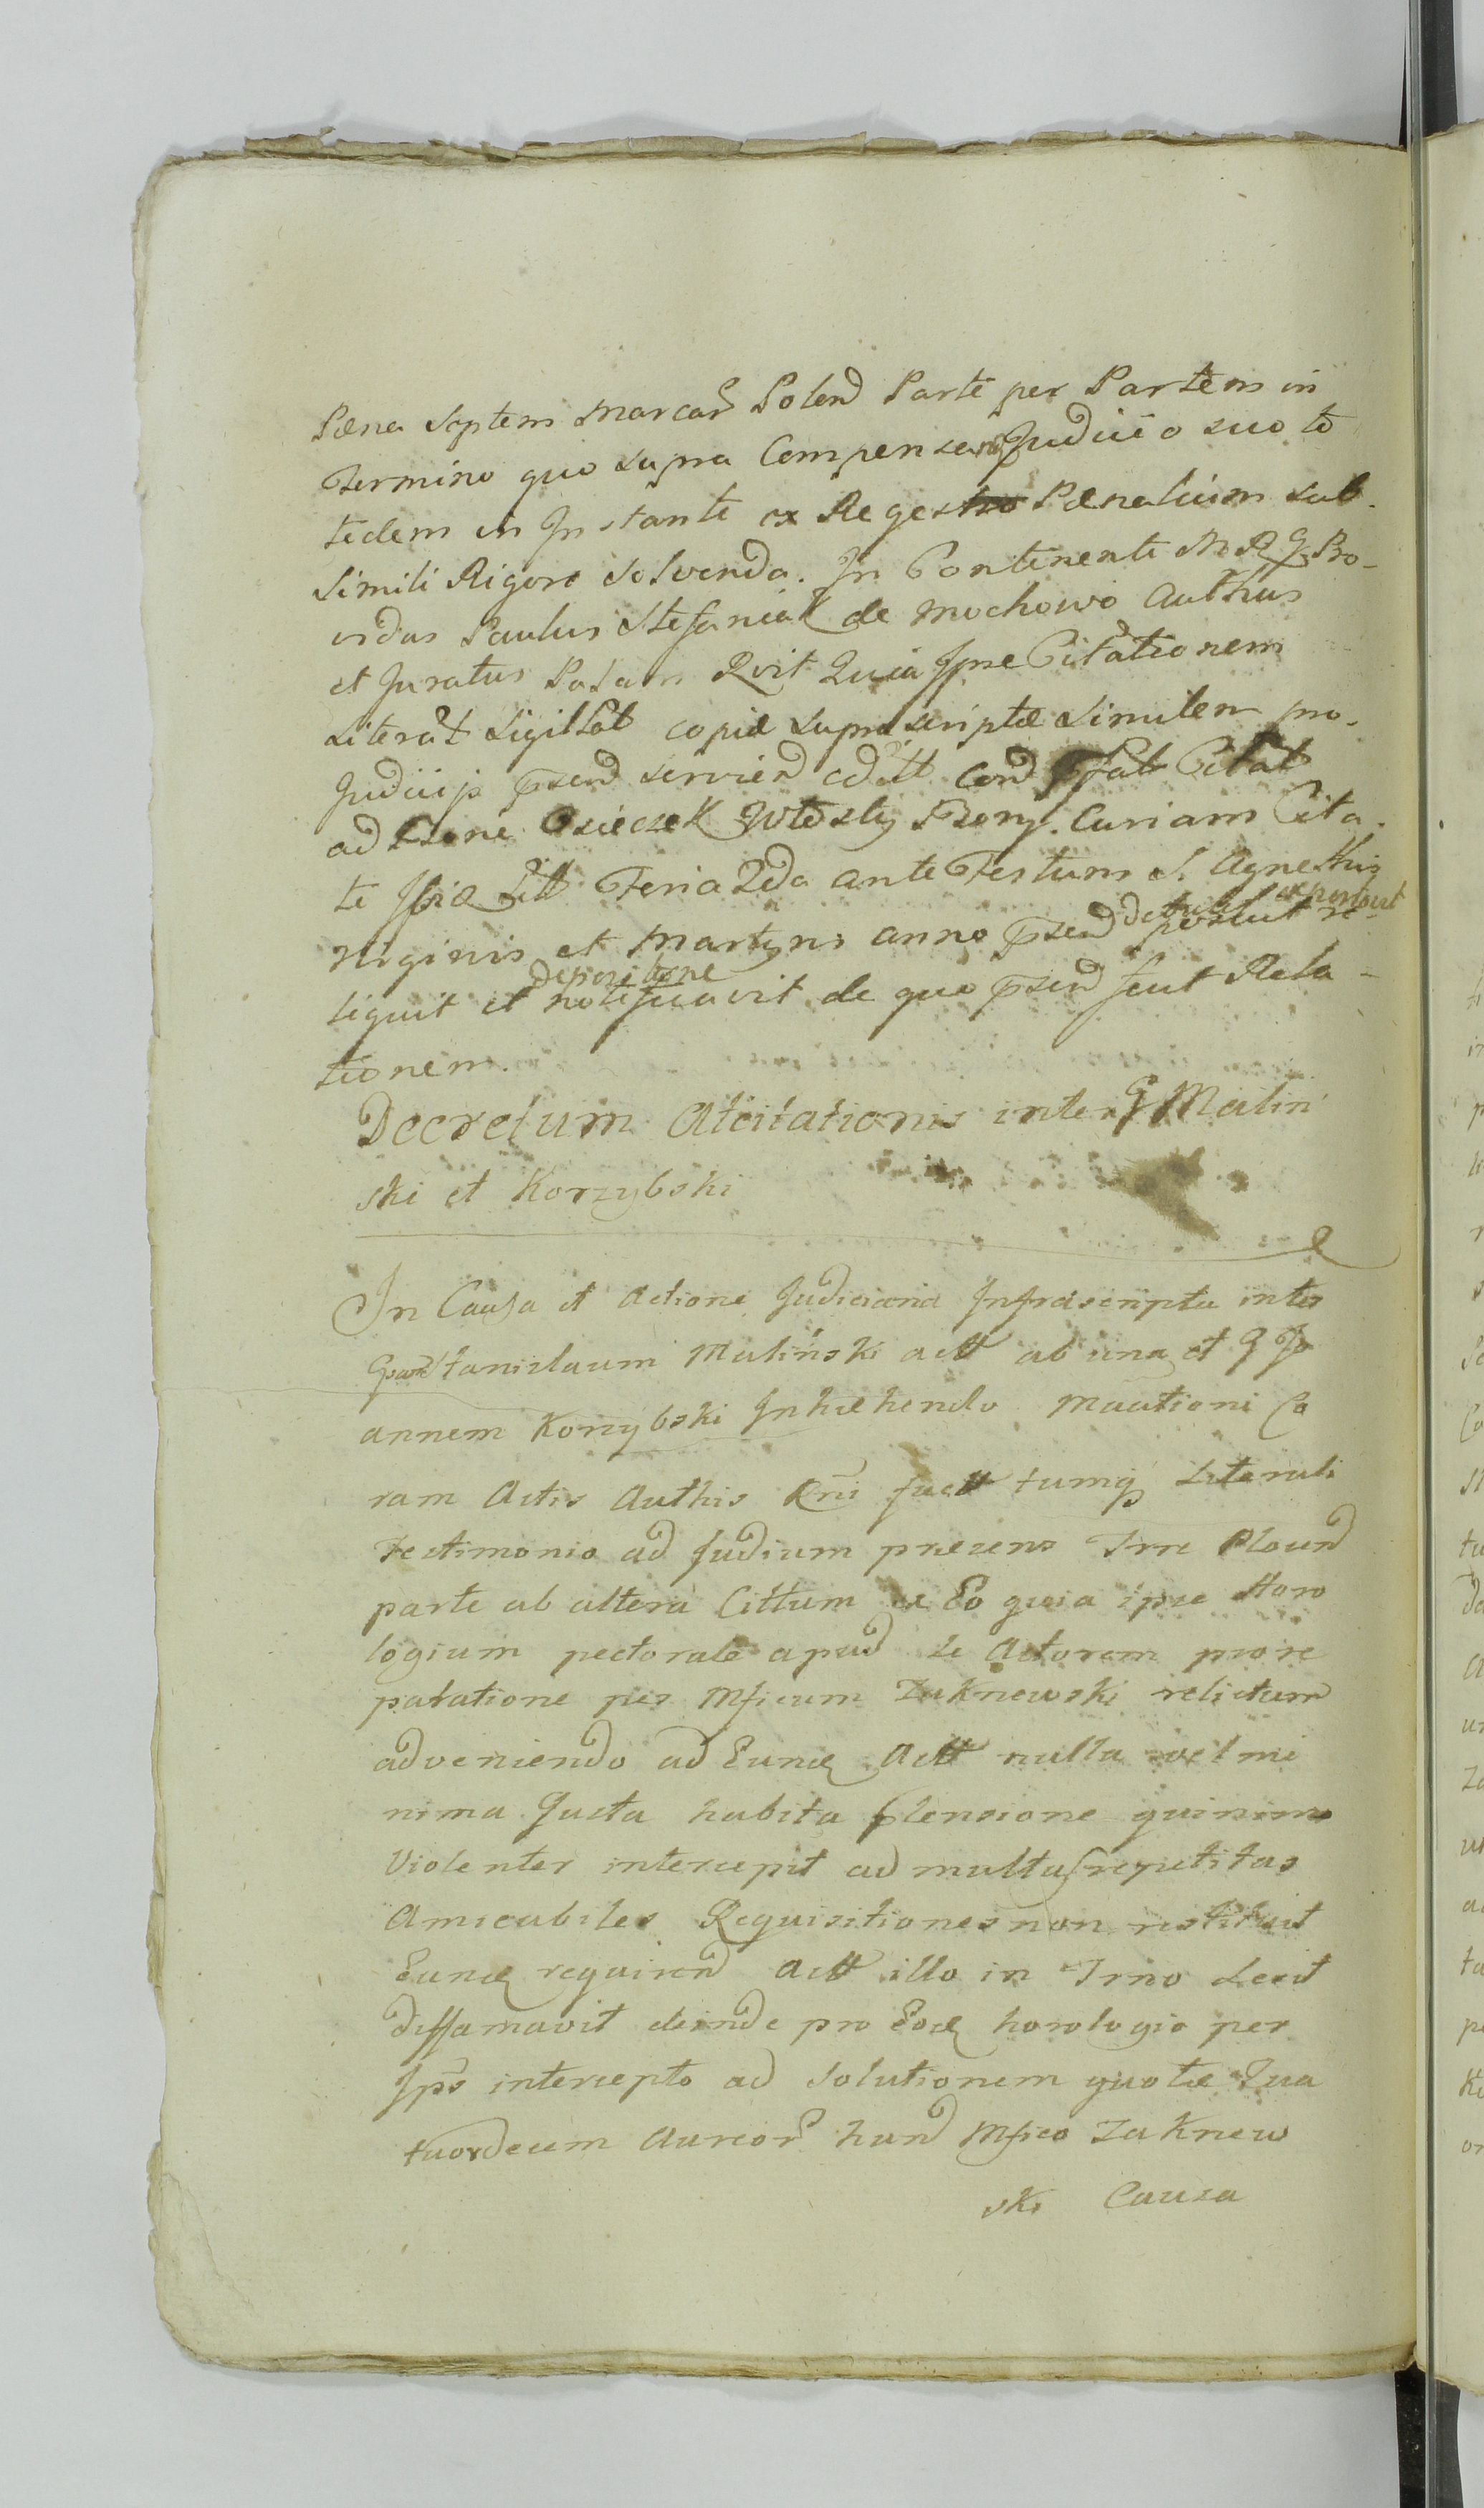 Pœna Septem Marcar Polend Parte per Partem in
Termino quo supra Compensand Judicio suo to
tidem in Instanti ex Regestro Pœnalium sub
Simili Rigore Solvenda. In Continenti M R G Pro-
vidus Paulus Stefaniak de Mochowo Authus
et Juratus Palam Rvit Quia Ipse Citationem
Literat Sigillat copiæ supra scriptæ Similem pro
Judicijs pesend serviend Cond Citat
ad Osieczek Curiam Cita
te Feria 2da ante Festum S. Agnethis
Virginis et Martyris anno psend detulit posuit re
exposuit
liquit et notificavit de quo psend fecit Rela-
depositione
tionem.
Decretum Atcitationis inter G Malin
ski et Korzybski
In Causa et Actione Judiciaria Infrascripta inter
Gsum Stanislaum Malinski actt ab una et G Jo
annem Korzybski Inhæhendo Mautioni Co
ram Actis Authis Rni factt tumq Literali
Testimonio ad Judium presens Trre Plound
parte ab altera Cittum ex Eo quia ipse Horo
logium pectorale apud se Actorem pro re
paratione per Mficum Zaknewski relictum
adveniendo ad Eund Actt nulla vel mi
nima Justa habita plensione quinimo
Violenter intercepit ad multas repetitas
Amicabiles Requisitiones non restituit
Eund requirend Actt illo in Trno Lecit
diffamavit deinde pro Eod horologio per
Ips intercepto ad Solutionem quotæ Qua
tuordecem Aureor hund Mfico Zaknew
ski Causa